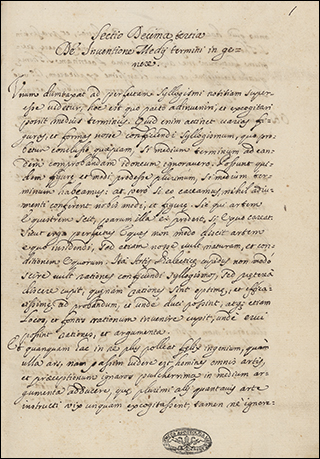 Sectio Decima tertia
De Inventione Medij termini in ge-
nere.
Unum dumtaxat ad perfectam syllogismi notitiam super-
esse videtur, hoc est quo pacto adinveniri, et excogitari
possit medius terminus. Quid enim attinet varias fi-
guras, et formas nosse conficiendi syllogismum, quo pro-
betur conclusio quaepiam, si medium terminum ad ean-
dem comprobandam idoneum ignoravero? possunt qui-
dem figurae, et modi prodesse plurimum, si medium ter-
minum habeamus, at vero si eo careamus, nihil adiu-
menti conferent nobis modi, et figurae. Sic qui artem
equestrem scit, parum illa ei proderit, si equo careat.
Sicut ergo perfectus eques non modo discit artem
equo insidendi, sed etiam nosse vult naturam, et con-
ditionem equorum. Ita Artis Dialecticae cupidus non modo
scire vult rationes conficiendi syllogismos, sed praeterea
discere cupit, quaenam rationes sint optimae, et effica-
cissimae ad probandum, et unde duci possint, atque etiam
Locos, et fontes rationum invenire cupit, unde erui
possint rationes, et argumenta.
Et quanquam hac in re plus polleat felix ingenium, quam
ulla ars, nam passim videre est homines omnis artis,
et praeceptionum ignaros pulcherrima in medium ar-
gumenta adducere, quae plurimi alij quantavis arte
instructi vix unquam excogitassent, tamen ne ignore-